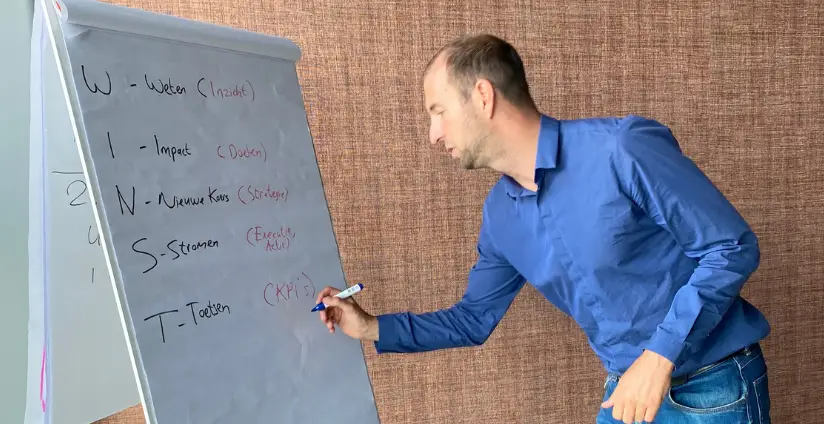 W - Weten (Inzicht)
I - Impact (Doelen)
N - Nieuwe Koers (Strategie)
S - Stromen (Executie,
Actie)
T - Toetsen (KPI's)
2
4
1